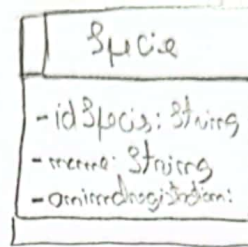 Specie
-idSpecie: String
-nome: String